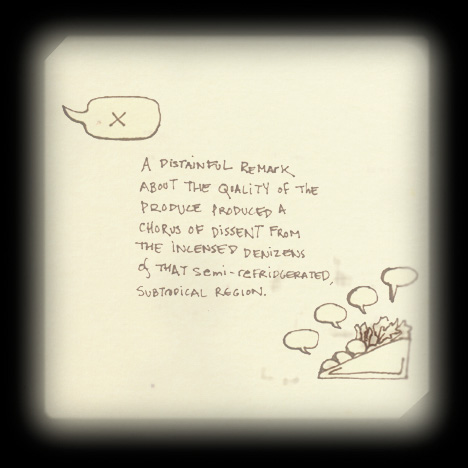 X
A DISTAINFUL REMARK
ABOUT THE QUALITY OF THE
PRODUCE PRODUCED A
CHORUS OF DISSENT FROM
THE INCENSED DENIZENS
of THAT semi-refridgerated,
SUBTROPICAL REGION.